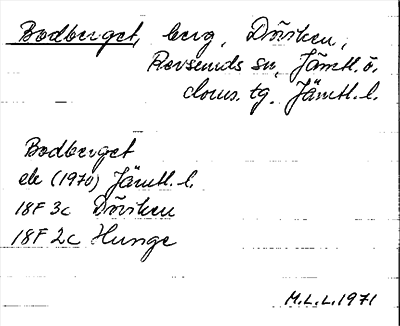 Bodberget, berg, Döviken,
Revsunds sn, Jämtl. ö.
doms. tg, Jämtl. l.
Bodberget
ek (1970) Jämtl. l.
18F 3c Döviken
18F 2c Hunge
M.L.L. 1971